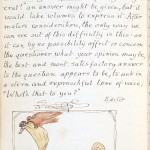 crat?" an answer might be given, but it
would take volumes to express it. After
mature consideration, the only way we
can see out of this difficulty is this: as
it can by no possibility affect or concern
the questioner what your opinion may
be, the best and most satisfactory answer
to the question appears to be, to ask in
a stern and reproachful tone of voice,
"What's that to you?"
Editor